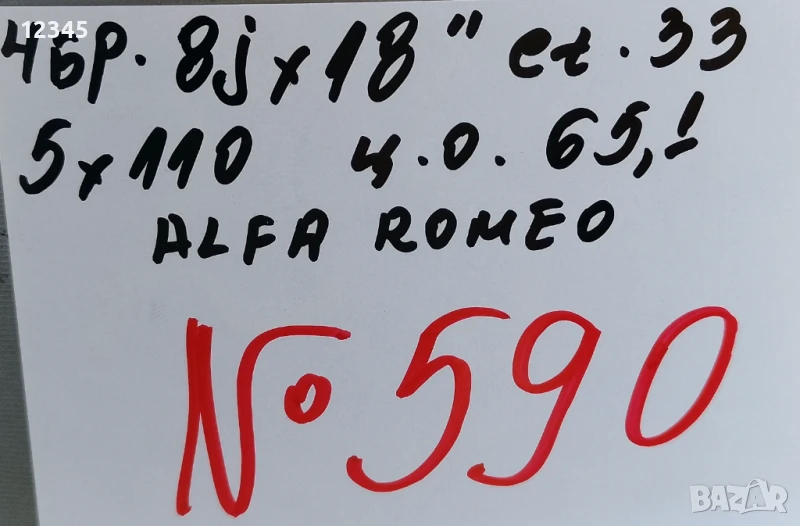 12345
4бр. 8jx18" et. 33
5x110 ц.о. 65,1
ALFA ROMEO
№ 590
BAZAR